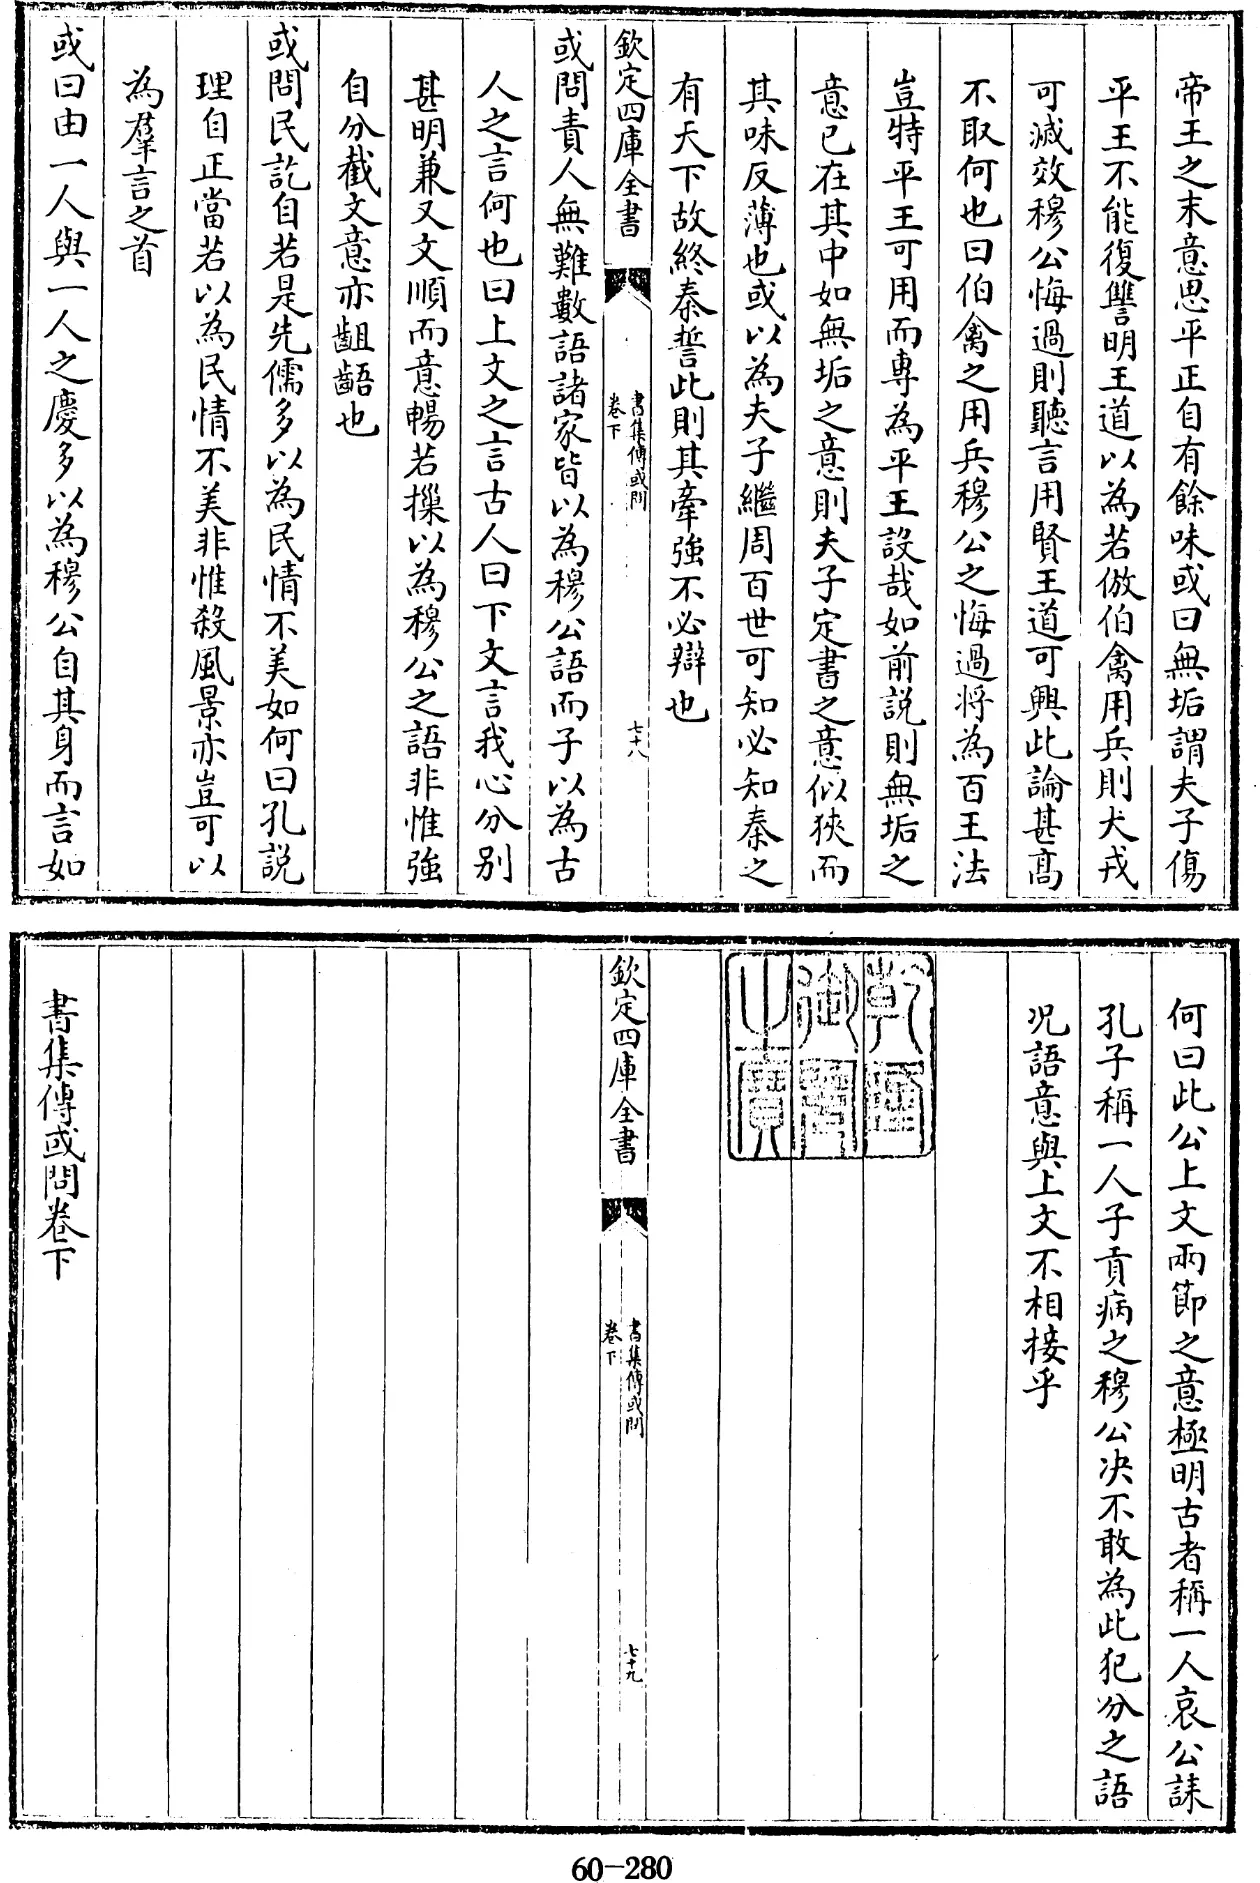 帝王之末意思平正自有餘味或曰無垢謂夫子傷
平王不能復讐明王道以為若倣伯禽用兵則犬戎
可滅效穆公悔過則聽言用賢王道可興此論甚高
不取何也曰伯禽之用兵穆公之悔過將為百王法
豈特平王可用而專為平王設哉如前説則無垢之
意已在其中如無垢之意則夫子定書之意似狹而
其味反薄也或以為夫子繼周百世可知必知秦之
有天下故終秦誓此則其牽強不必辯也
欽定四庫全書
書集傳或問
卷下
七十八
或問責人無難數語諸家皆以為穆公語而子以為古
人之言何也曰上文之言古人曰下文言我心分别
甚明兼又文順而意暢若摷以為穆公之語非惟強
自分截文意亦齟齬也
或問民訖自若是先儒多以為民情不美如何曰孔説
理自正當若以為民情不美非惟殺風景亦豈可以
為羣言之首
或曰由一人與一人之慶多以為穆公自其身而言如
何曰此公上文兩節之意極明古者稱一人哀公誄
孔子稱一人子貢病之穆公决不敢為此犯分之語
况語意與上文不相接乎
乾隆
御覽
之寶
欽定四庫全書
書集傳或問
卷下
七十九
書集傳或問卷下
60-280